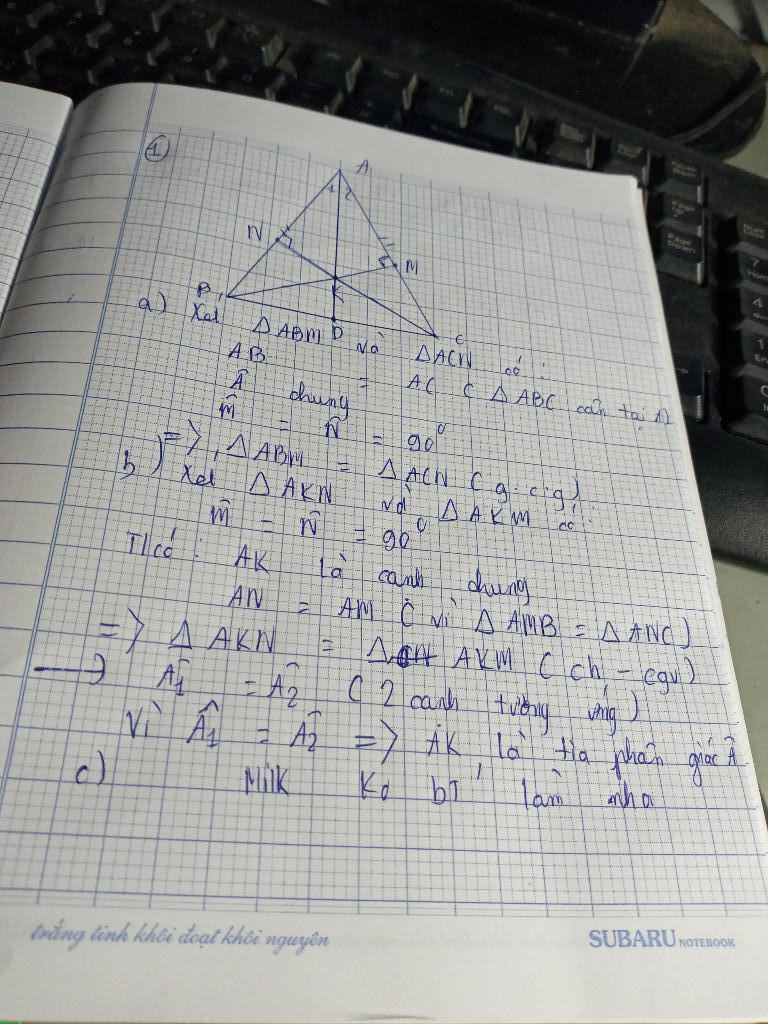 ①
A
1 2
N
M
B 1
K
D
C
a) Xet ΔABM và ΔACN có :
AB = AC ( ΔABC cân tại A)
Â chung
M̂ = N̂ = 90⁰
=> ΔABM = ΔACN (g.c.g)
b) Xet ΔAKN và ΔAKM có :
M̂ = N̂ = 90⁰
T/có : AK là canh chung
AN = AM ( vì ΔAMB = ΔANC)
=> ΔAKN = Δ AKM ( ch - cgv)
Â1 = Â2 ( 2 canh tương ứng)
Vì Â1 = Â2 => AK là tia phân giác Â
c) Mik Ko bt làm nha
trắng tinh khôi đoạt khôi nguyên
SUBARU NOTEBOOK
Page Up
Page Down
7
4
1